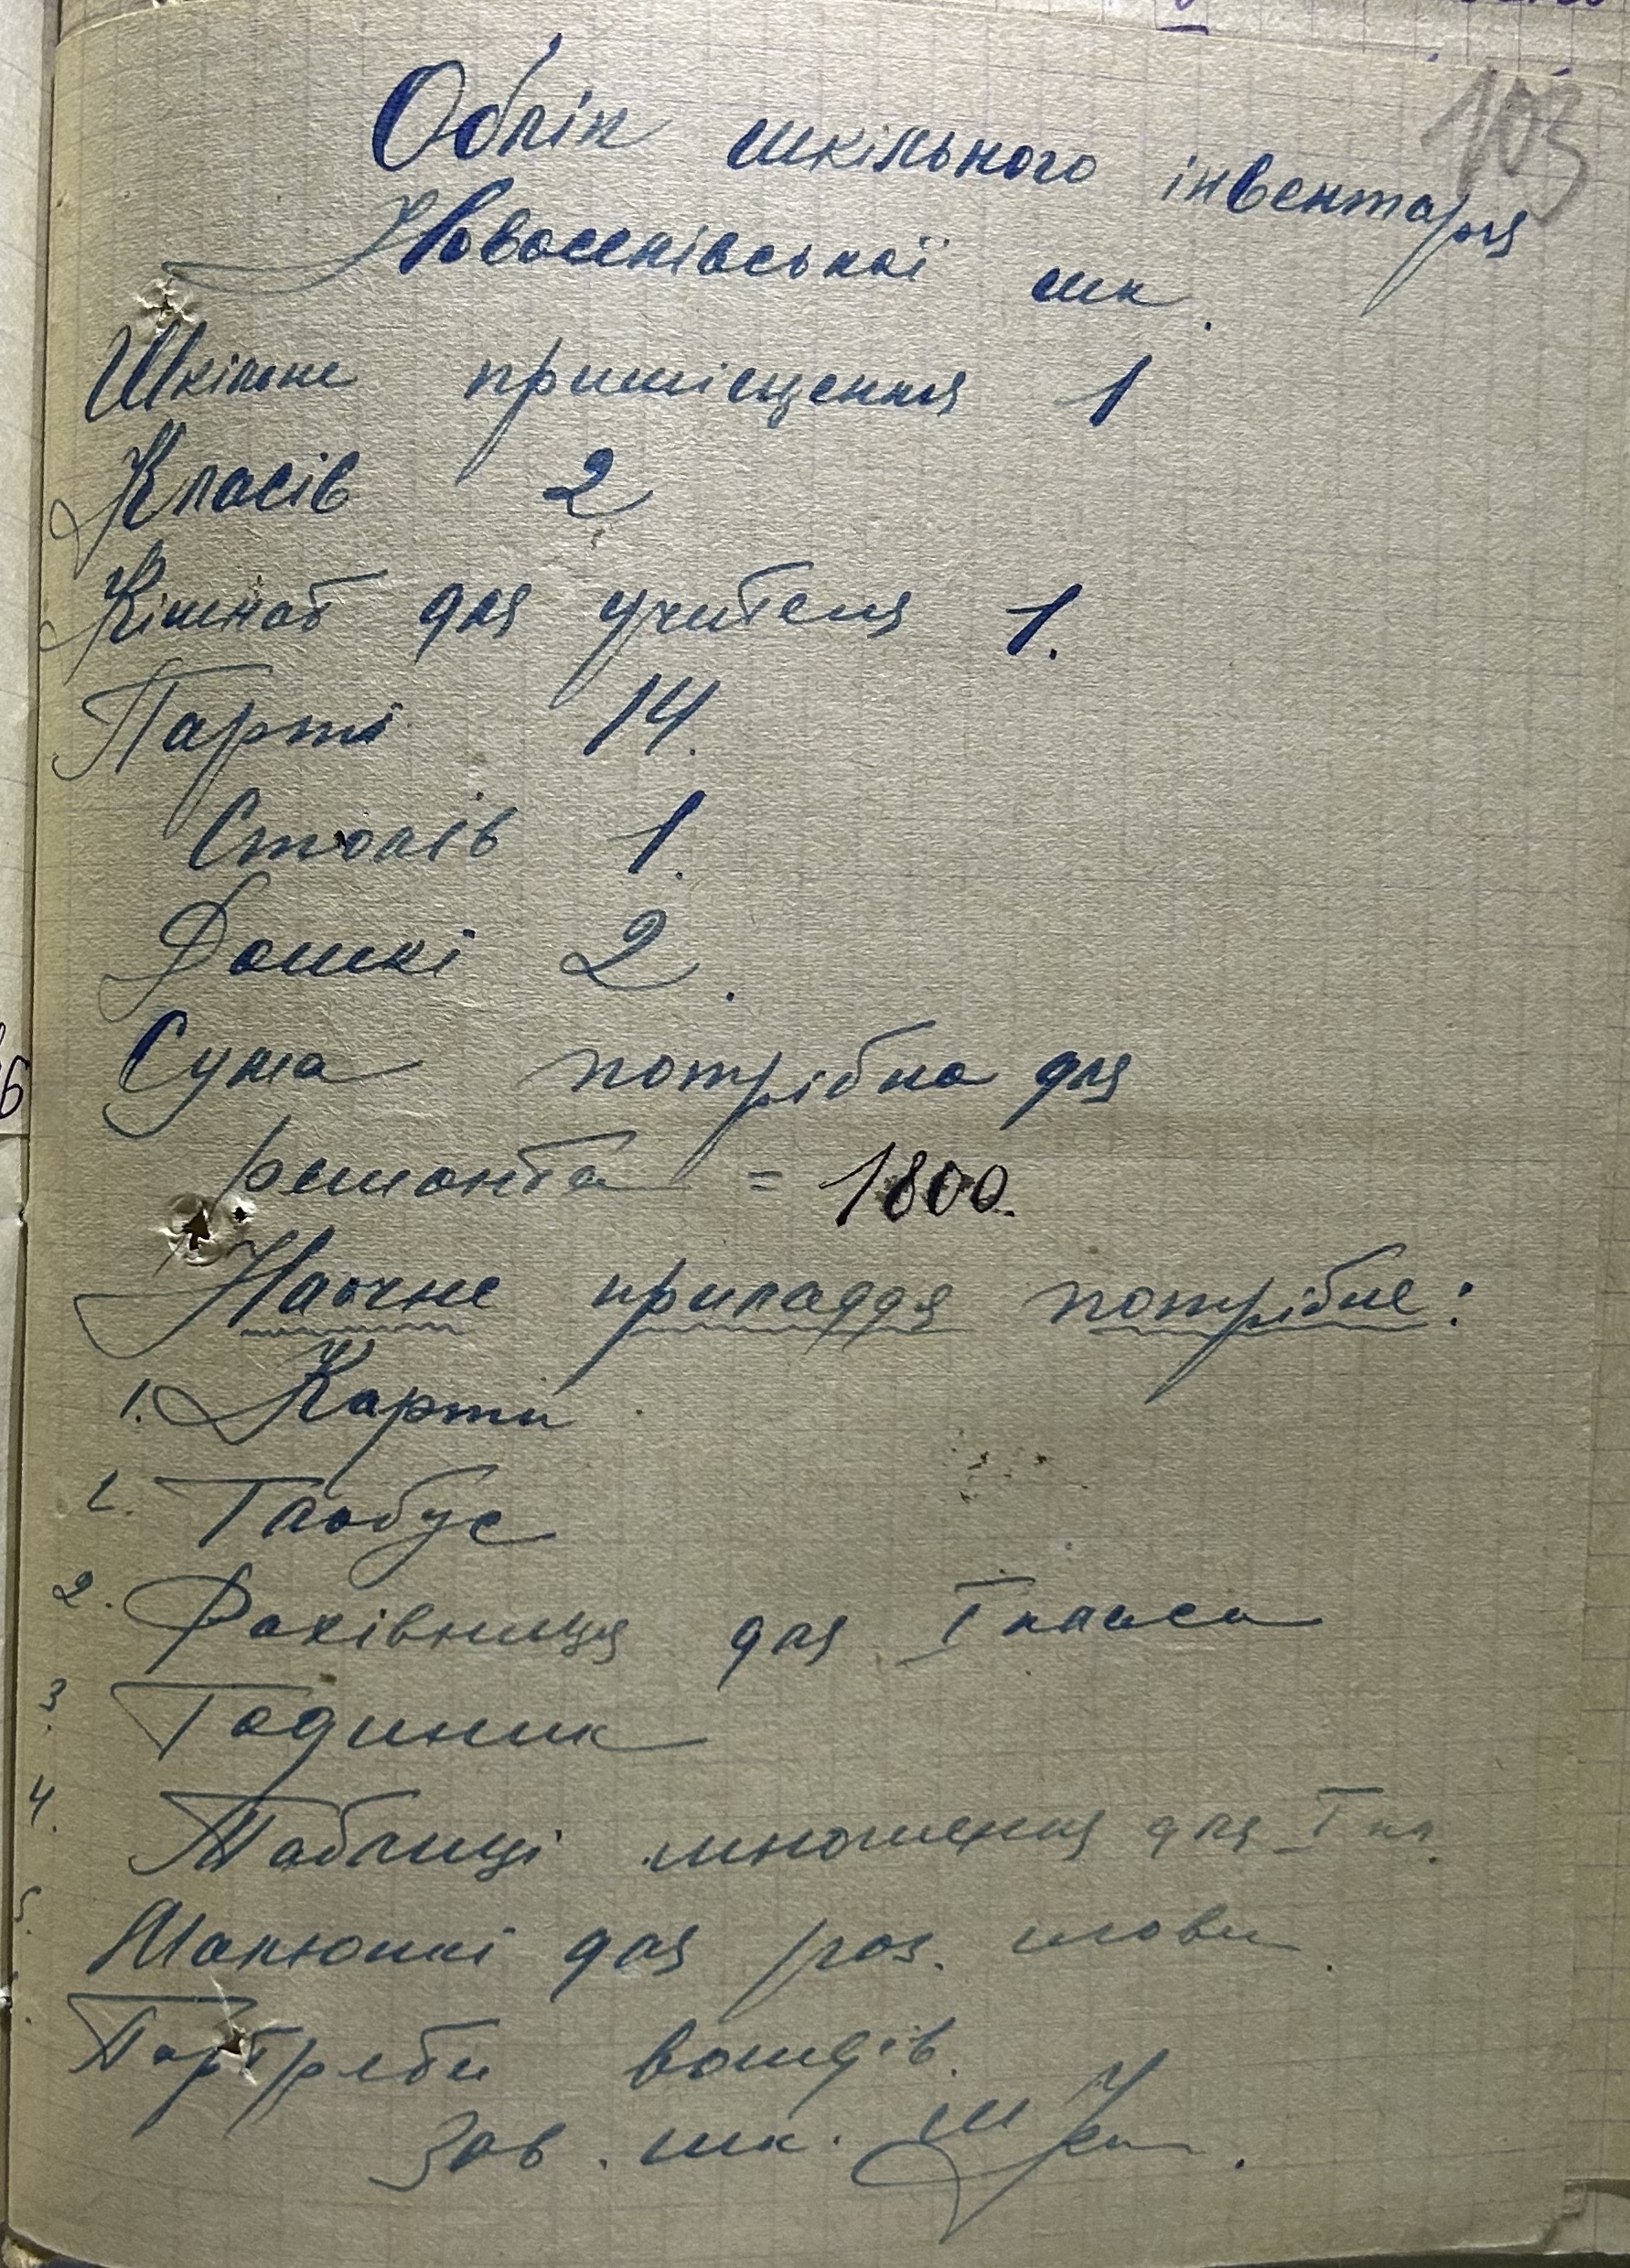 103
Облік шкільного інвентаря
шк.
Шкільне приміщення 1
Класів 2
Кімнат для учителя 1.
Парті 14.
Столів 1.
Дошкі 2.
Сума потрібна для
ремонта = 1800.
Наочне приладдя потрібне:
1. Карти
2. Глобус
2. Рахівниця для I класа
3. Годиник
4. Таблиці множення для I кл.
5. Малюнкі для роз. мови
Портрети вождів.
Зав. шк.